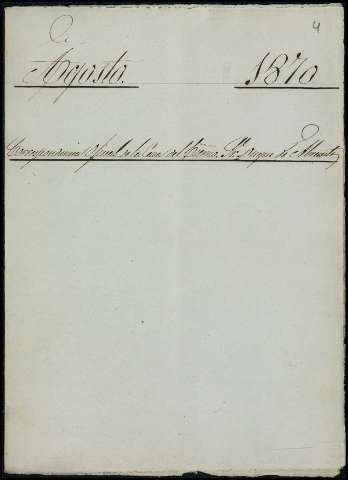 4
Agosto. 1870
Correspondencia oficial de la Casa del Exmo. Sr. Duque de Abrantes